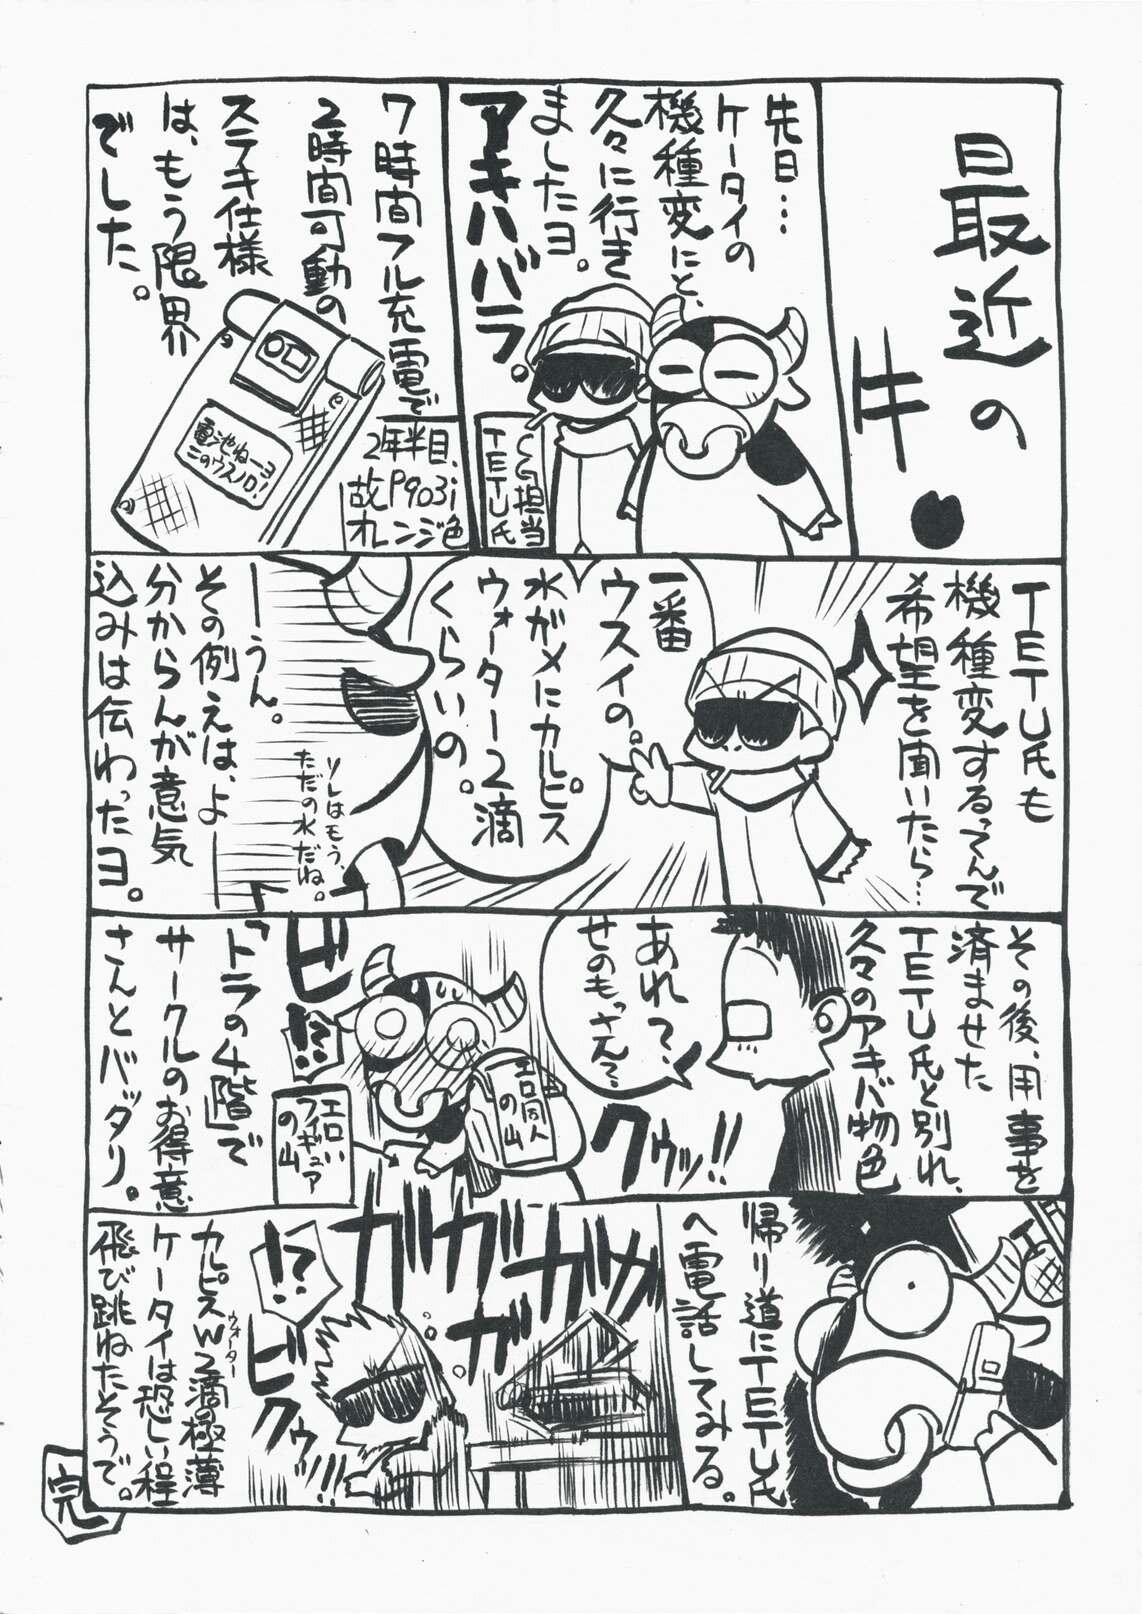 最近の
牛。
先日…
ケータイの
機種変にと、
久々に行き
ましたヨ。
アキハバラ。
CG担当
TETU氏
7時間フル充電で
2時間可動の
ステキ仕様
は、もう限界
でした。
2年半目、
故P903i
オレンジ色
電池ねーヨ
このウスノロ!
TETU氏も
機種変するってんで
希望を聞いたら…
一番
ウスイの。
水ガメにカルピス
ウォーター2滴
くらいの。
ソレはもう、
ただの水だね。
うーん。
その例えは、よー
分からんが意気
込みは伝わったヨ。
その後、用事を
済ませた
TETU氏と別れ、
久々のアキバ物色
あれ?、
せのもっさん?
クウッ!!
ビ
!?
エロ同人
の山
エロい
フィギュア
の山
「トラの4階」で
サークルのお得意
さんとバッタリ。
帰り道にTETU氏
へ電話してみる。
ガガガガガ
!?
ビクウッ!!
カルピスW2滴極薄
ウォーター
ケータイは恐しい程
飛び跳ねたそうで。
完